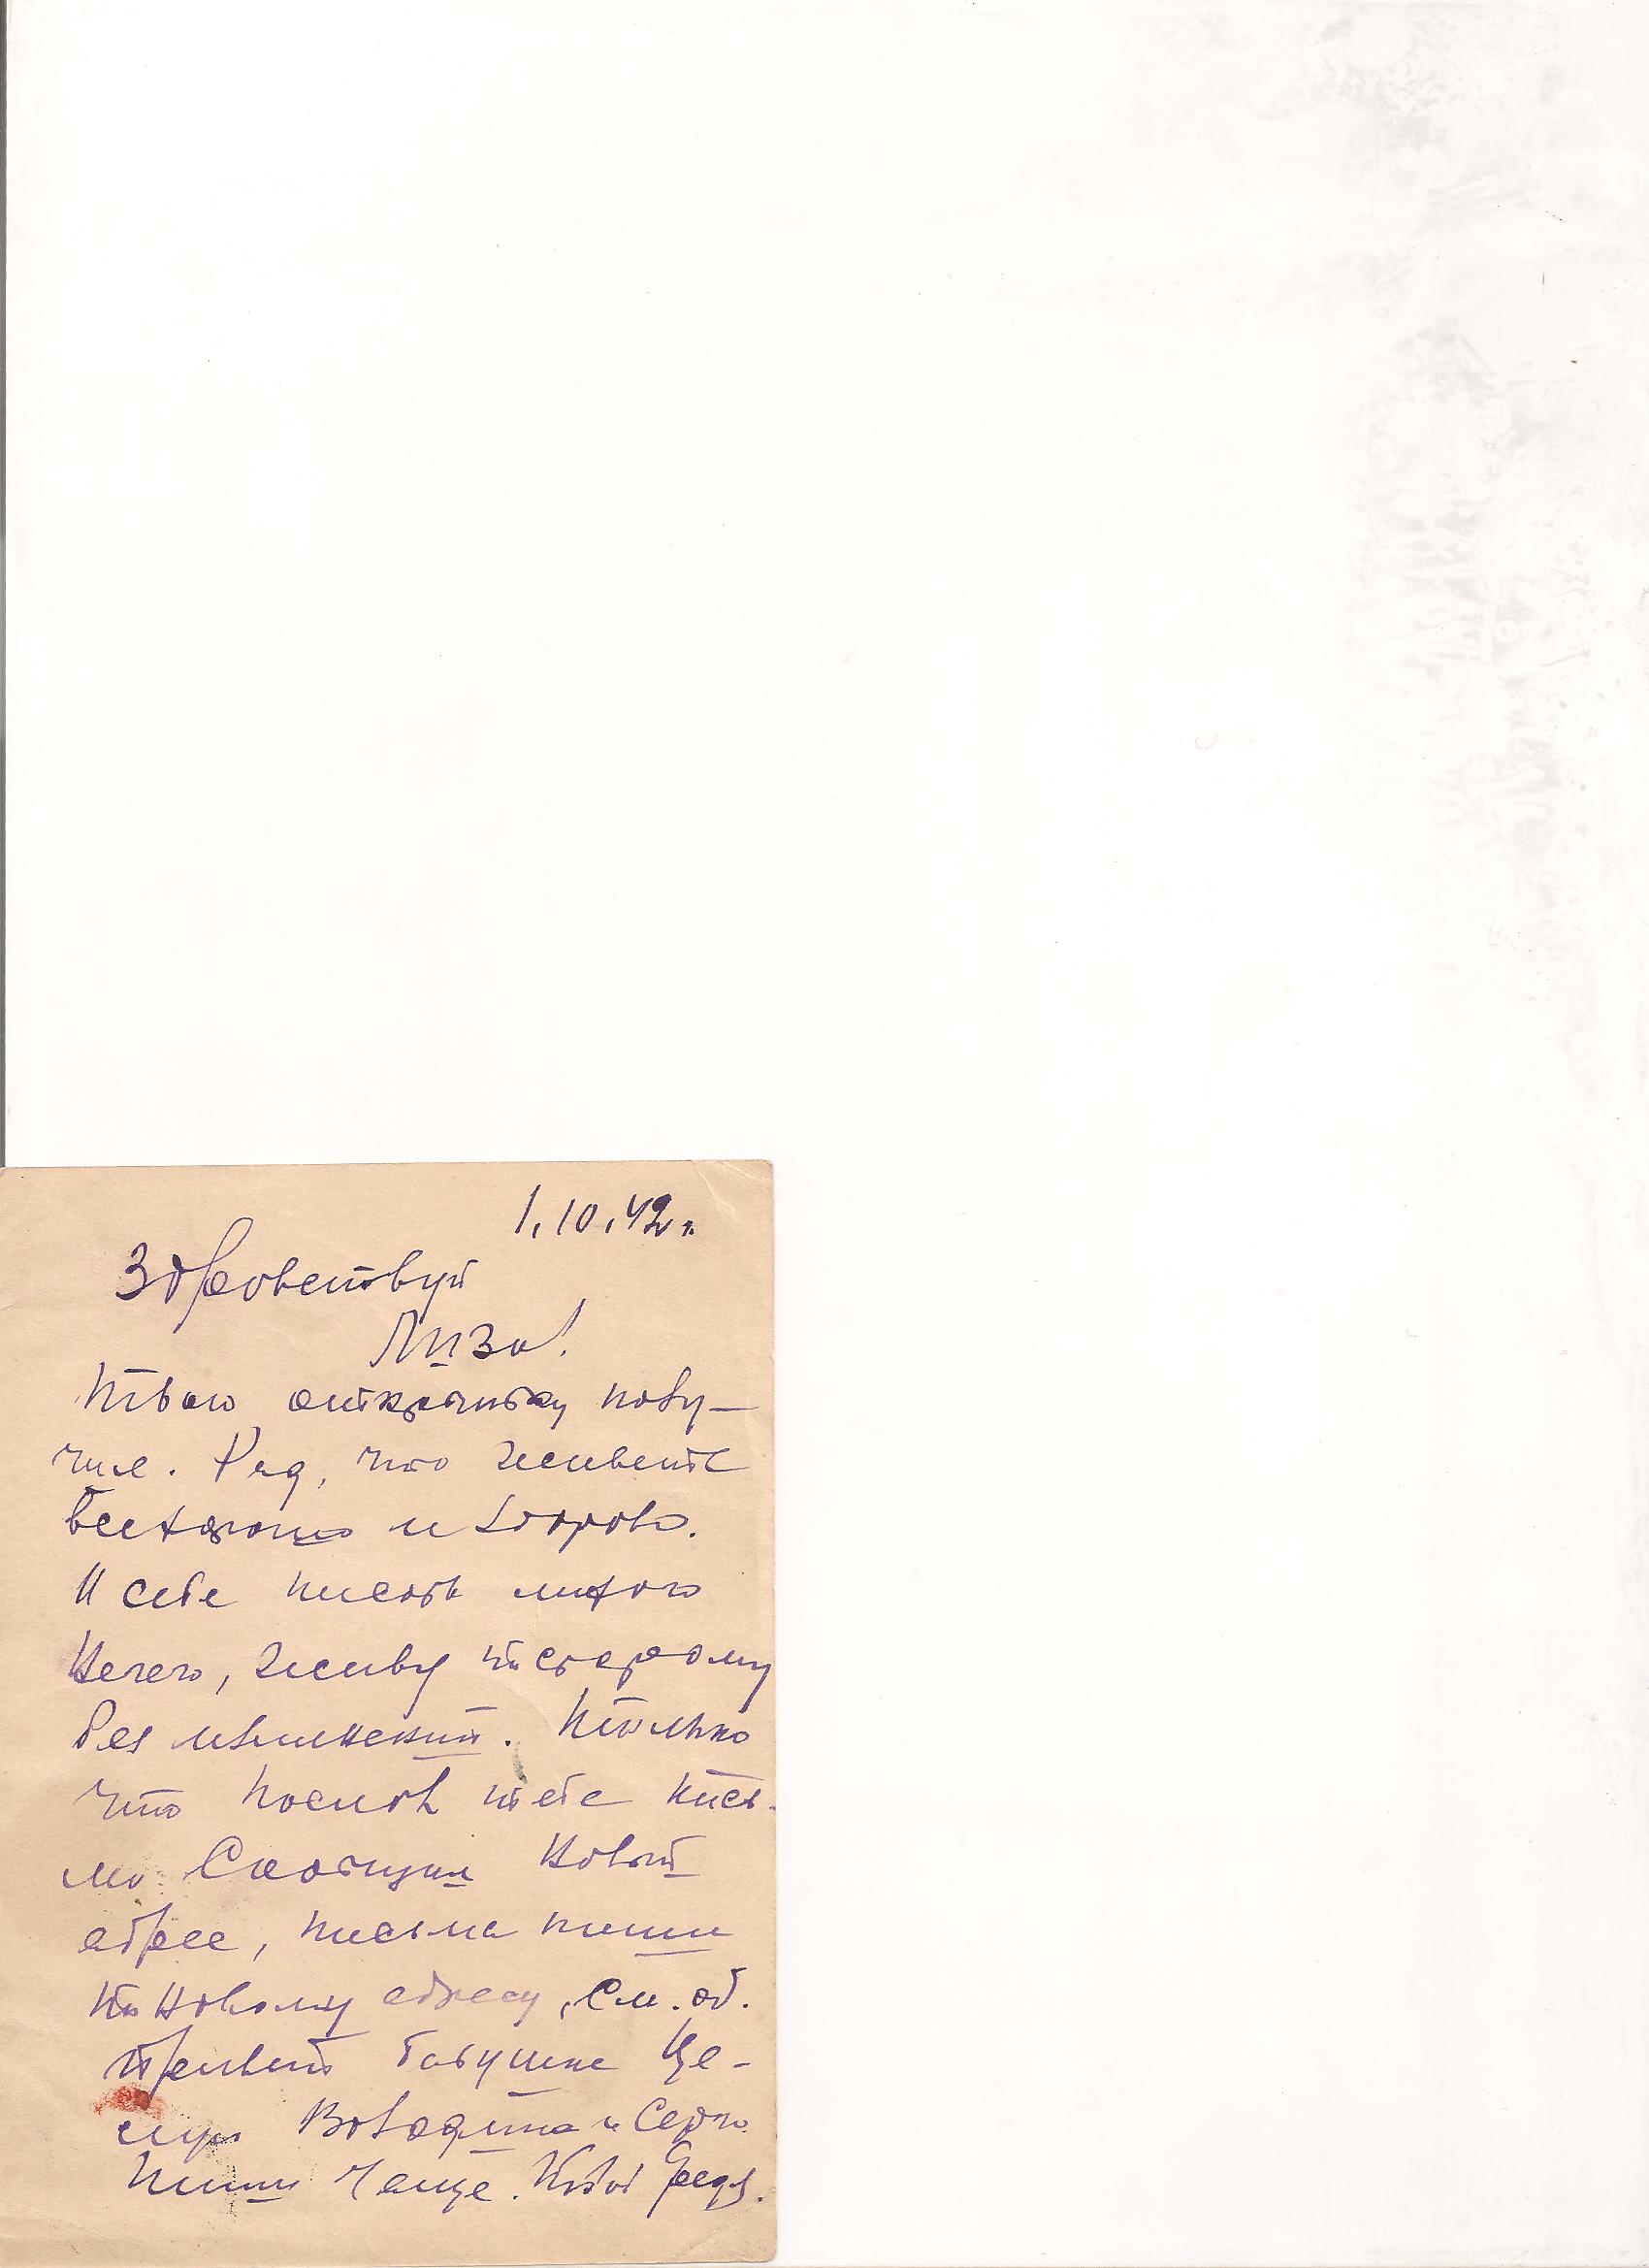 1.10.42 г.
Здравствуй
Лиза!
Твою открытку полу-
чил. Рад, что живете
все хорошо и здорово.
О себе писать много
нечего, живу по старому
без изменений. Только
что послал тебе пись-
мо Сообщил новый
адрес, письма пиши
по новому адресу, см. об.
Привет бабушке Це-
лую Володьку и
Пиши чаще. Твой